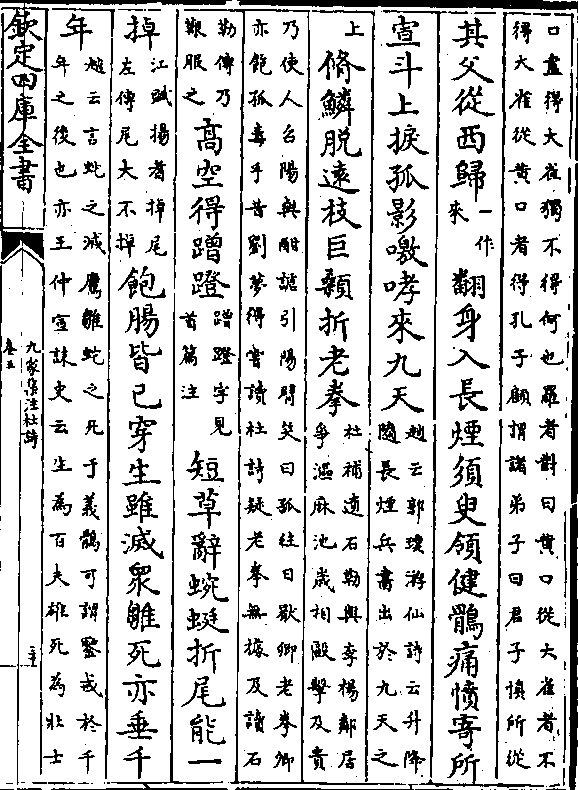 口盡得大雀獨不得何也羅者對曰黄口從大雀者不
得大雀從黄口者得孔子顧謂諸弟子曰君子慎所從
其父從西歸一作來翻身入長煙須臾領健鶻痛憤寄所
宣斗上捩孤影噭哮來九天趙云郭璞游仙詩云升降隨長煙兵書出於九天之
上脩鱗脱遠枝巨顙折老拳杜補遺石勒與李楊鄰居爭漚麻池歲相毆擊及貴
乃使人召陽與酣謔引陽臂笑曰孤往日厭卿老拳卿
亦飽孤毒手昔劉夢得嘗讀杜詩疑老拳無據及讀石
勒傳乃艱服之高空得蹭蹬蹭蹬字見首篇注短草辭蜿蜒折尾能一
掉江賦揚者掉尾左傳尾大不掉飽腸皆已穿生雖滅衆雛死亦垂千
年趙云言蛇之滅鷹雛蛇之死于義鶻可謂鑒戒於千年之後也亦王仲宣詠史云生為百夫雄死為壯士
欽定四庫全書
九家集注杜詩
卷五